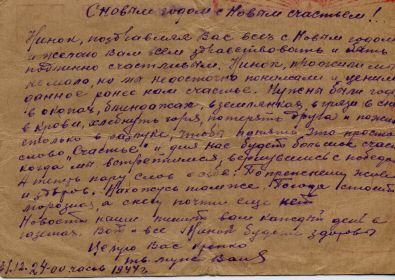 С новым годом с Новым счастьем!!
Нинок, поздравляя Вас всех с Новым годом
и желаю Вам всем здравствовать и быть
подлинно счастливым. Нинок, прожили мы
немало, но мы недосточно понимали и ценили
данное нам счастье. Нужны были годы
в окопах, блиндажах, в землянках, в грязи в сне
в крови, хлебнуть горя, потерять друга и
столько в разлуке, чтобы понять это простое
слово "Счастье" и для нас будет большое счас
когда мы встретимся, вернувшись с победой
А теперь пару слов о себе: По прежнему живы
и здоров. Нахожусь там же. Погода стоит
морозная, а снегу почти еще нет
Новости наши пишут вам каждый день в
газетах. Вот и все Нинок будьте здоровы
Целую Вас крепко
твой муж Ваня
31/12-24-00 часов 1944 г.